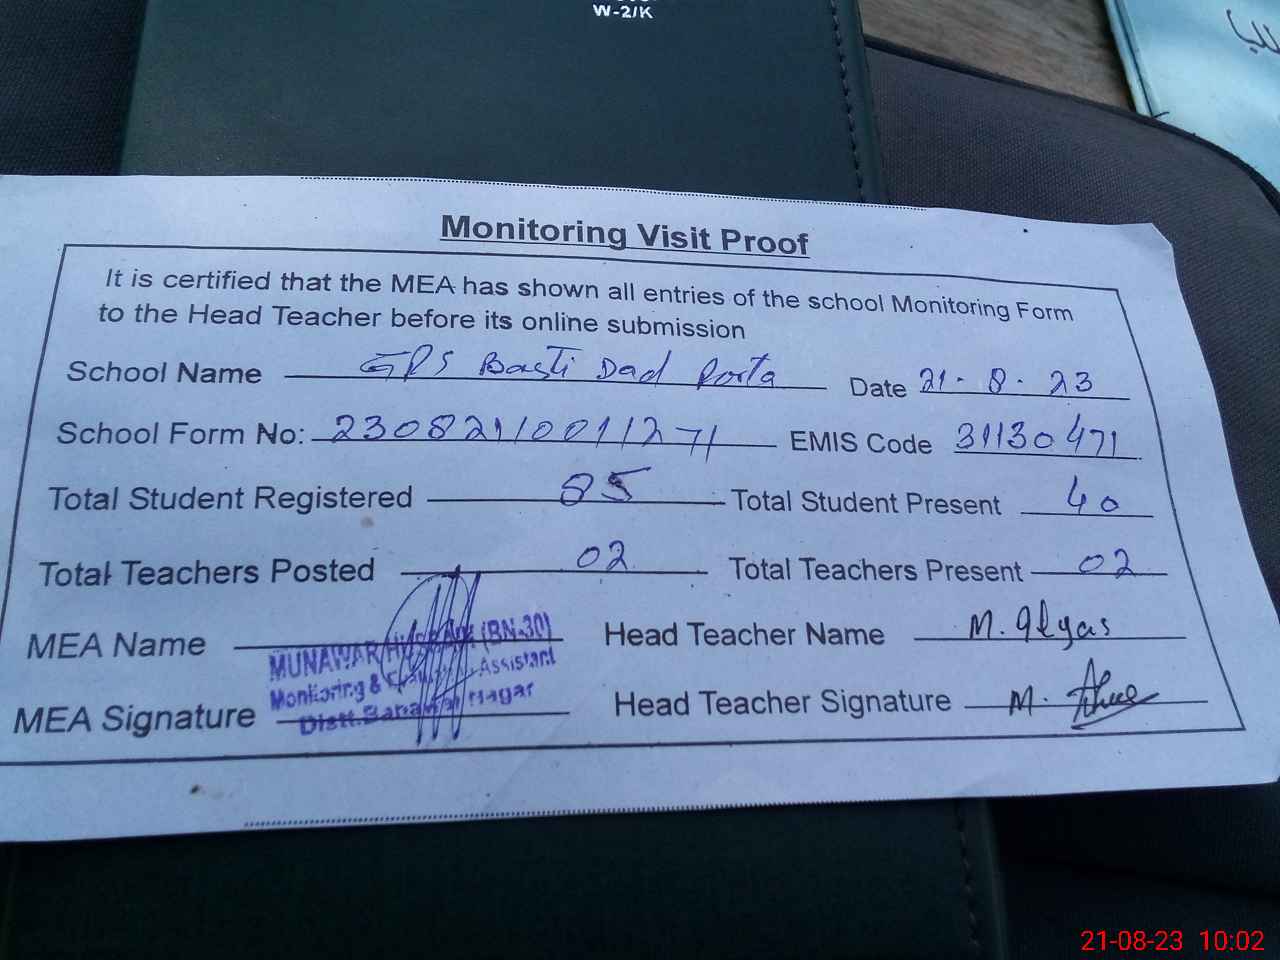 W-2/K
Monitoring Visit Proof
It is certified that the MEA has shown all entries of the school Monitoring Form
to the Head Teacher before its online submission
School Name GPS Basti Dad Porta Date 21-8-23
School Form No: 23082110011271 EMIS Code 31130471
Total Student Registered 85 Total Student Present 40
Total Teachers Posted 02 Total Teachers Present 02
MEA Name MUNAWAR (BN-30) Head Teacher Name M. Ilyas
Monitoring & Assistant
MEA Signature Distt. Bahawal Nagar Head Teacher Signature M.
21-08-23 10:02